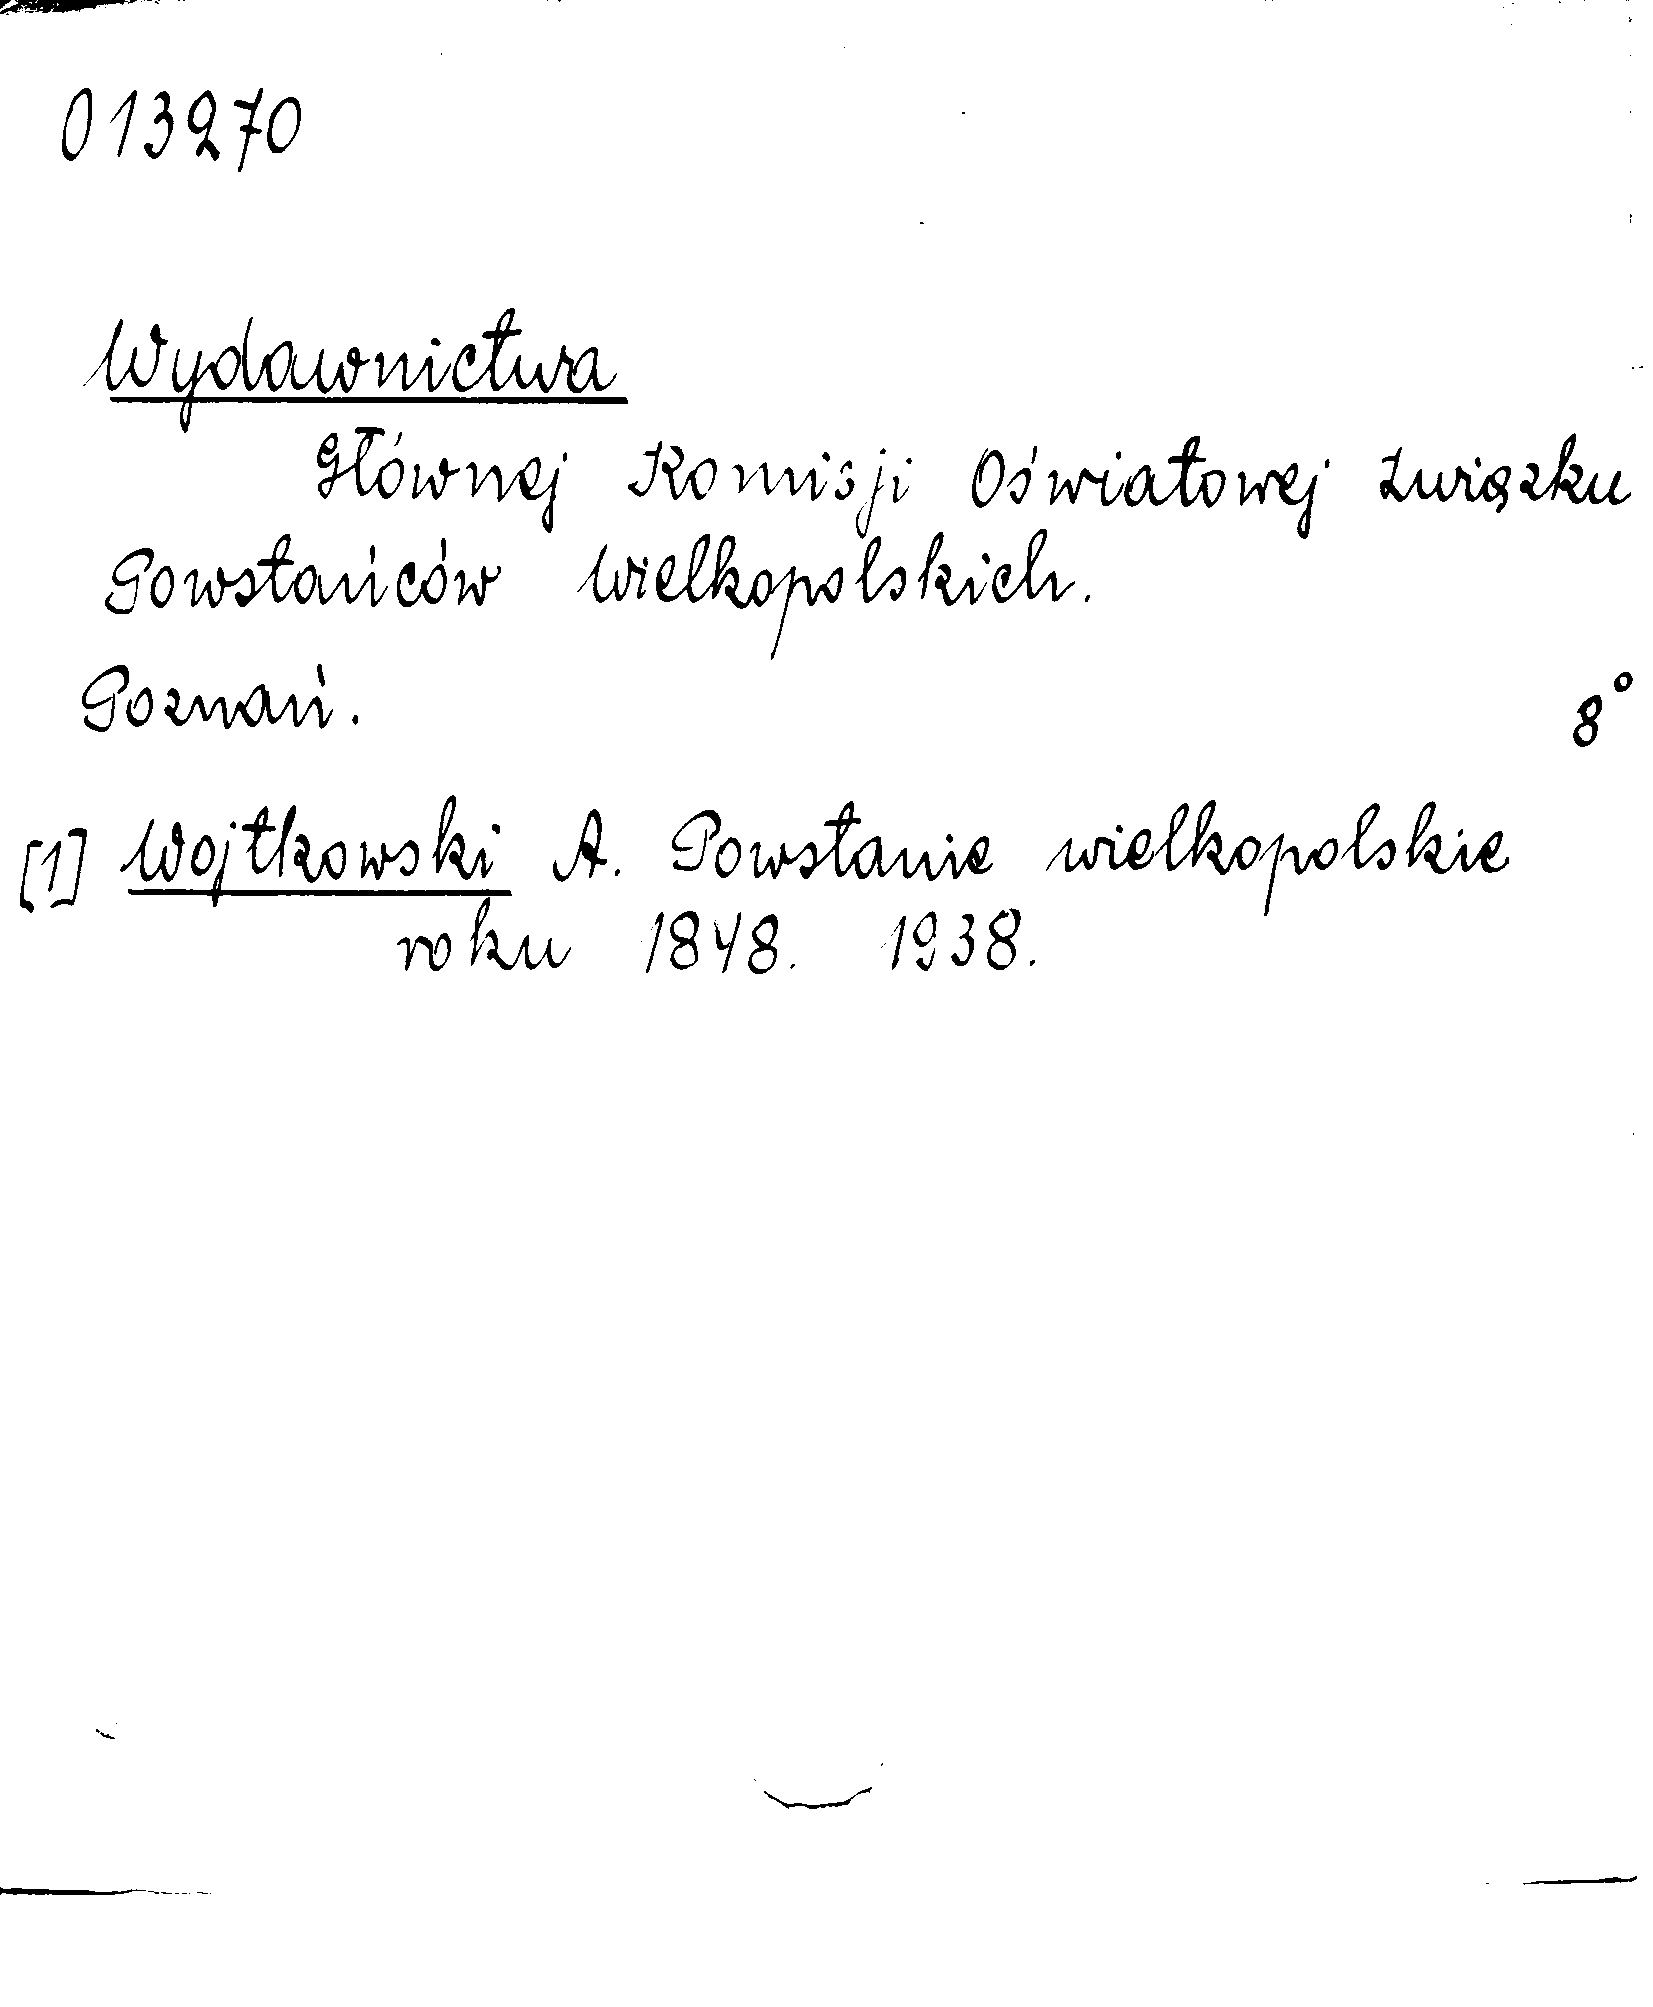 013270
Wydawnictwa
Głównej Komisji Oświatowej Związku
Powstańców Wielkopolskich.
Poznań.
8°
[1] Wojtkowski A. Powstanie wielkopolskie
roku 1848. 1938.